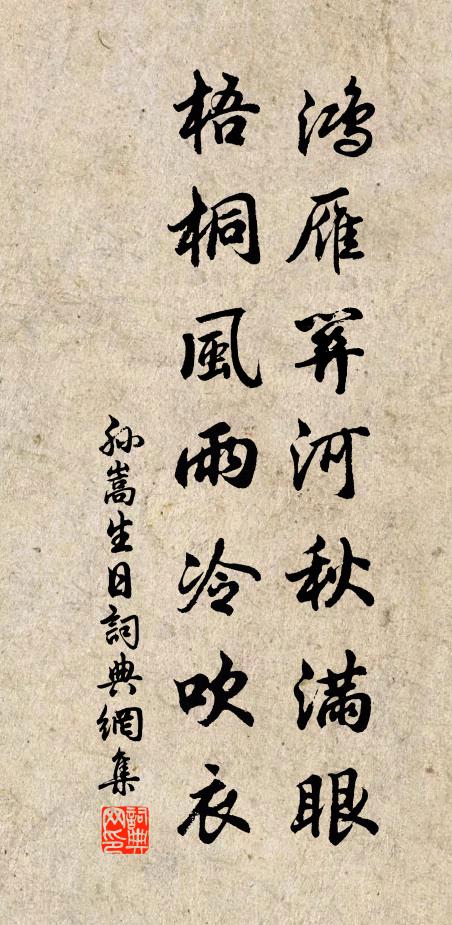 鴻雁關河秋滿眼
梧桐風雨冷吹衣
孫嵩生日詞典網集
詞典網印